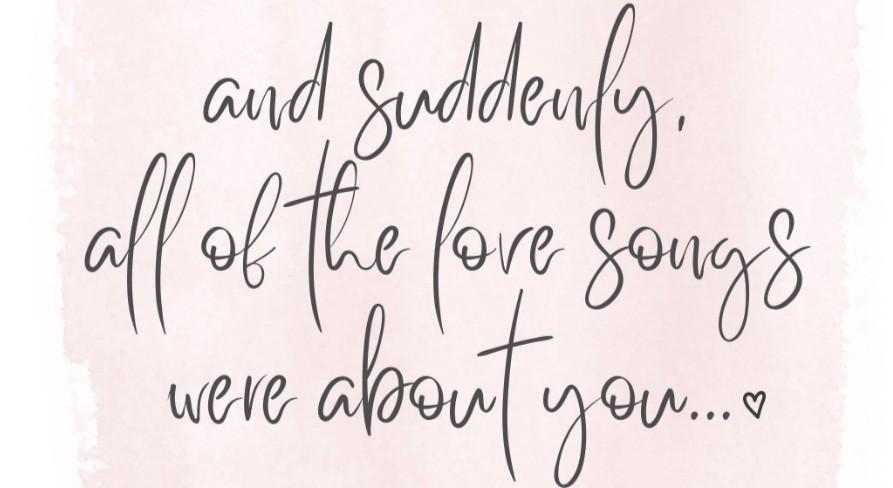 and suddenly,
all of the love songs
were about you...♡